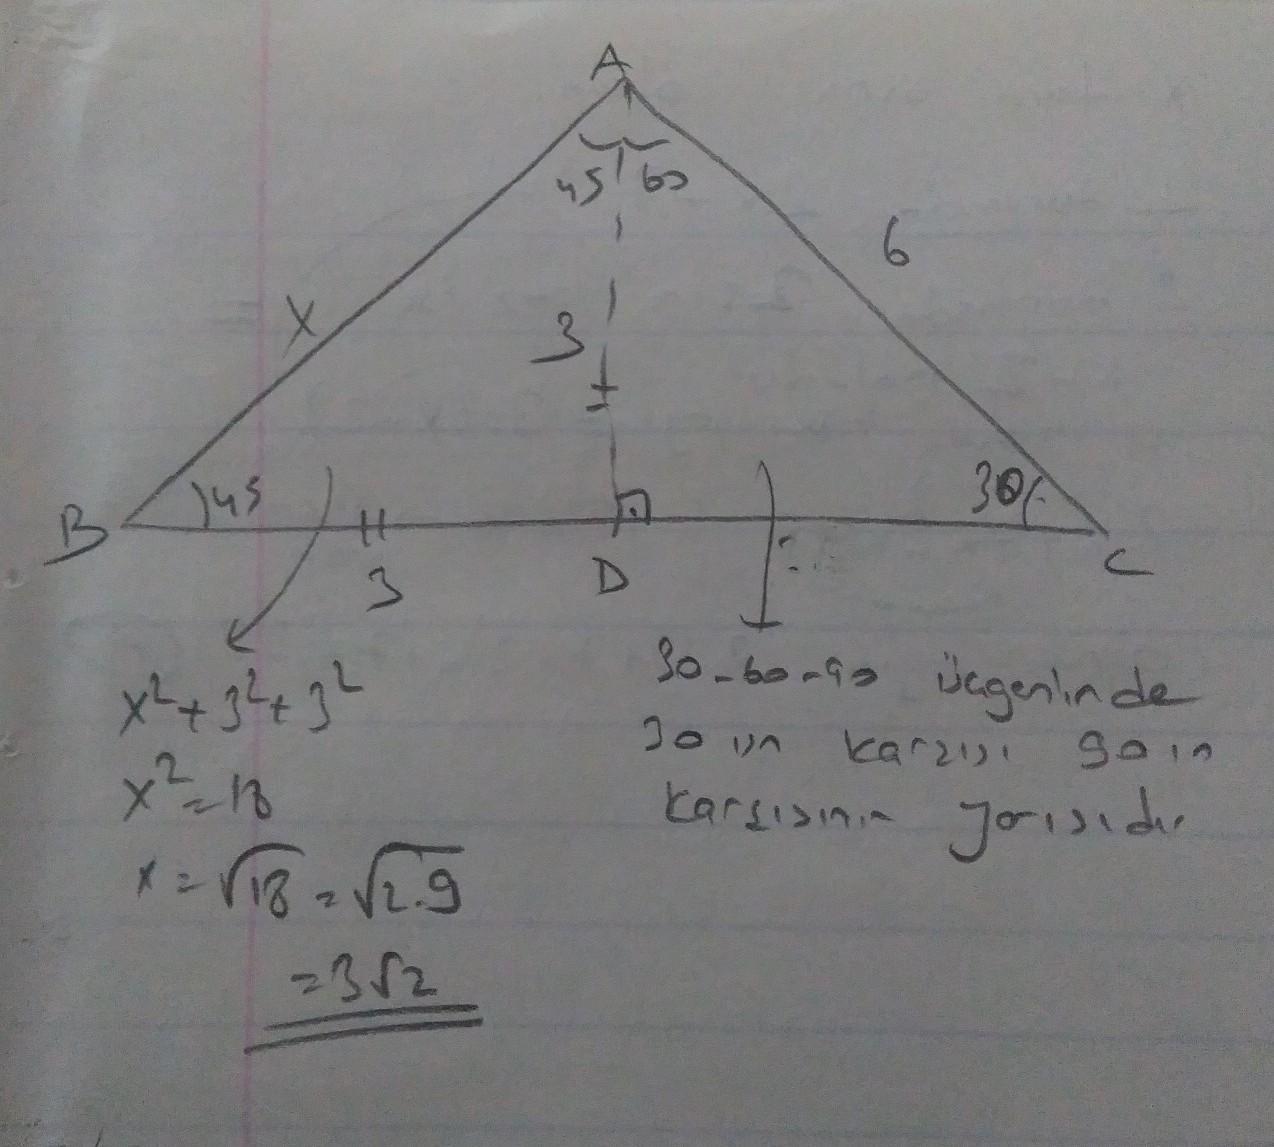 A
45 60
6
X
3
45
30
B
3
D
C
x²+3²+3²
x²=18
x=√18=√2.9
=3√2
30-60-90 üçgeninde
30 un karşısı 90 ın
karşısının yarısıdır